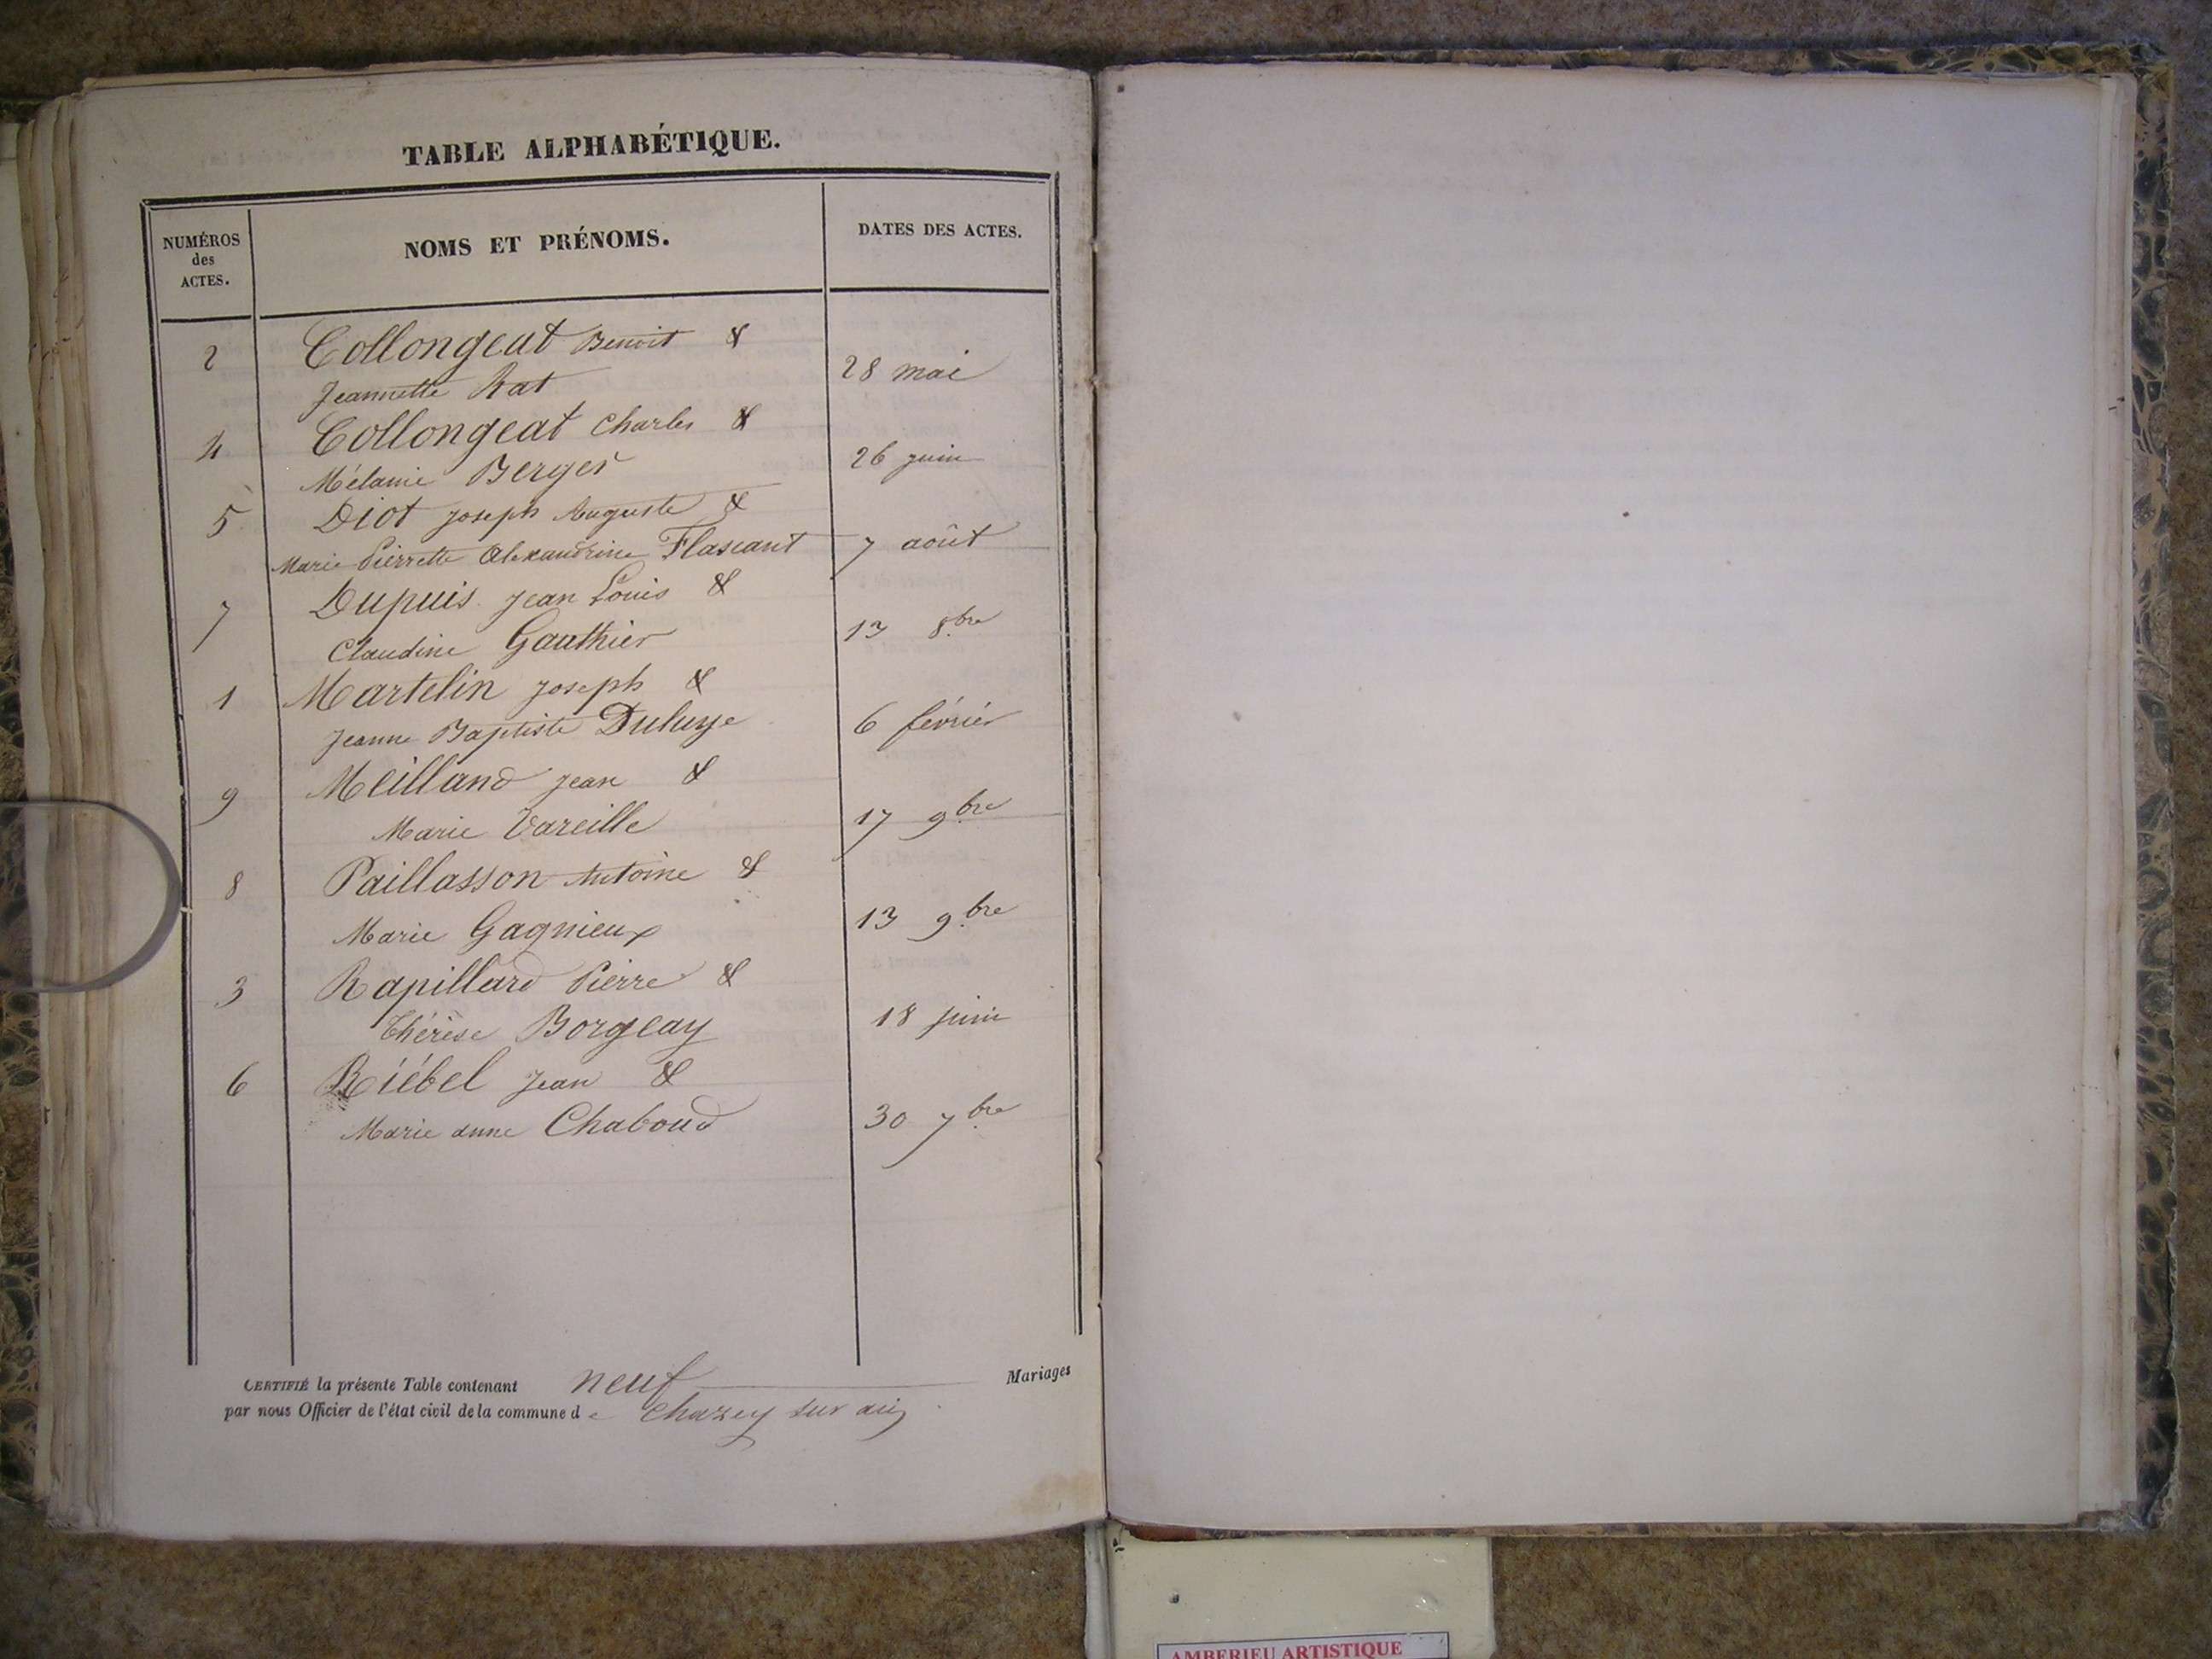 TABLE ALPHABÉTIQUE.
NUMÉROS
des
ACTES.
NOMS ET PRÉNOMS.
DATES DES ACTES.
2 Collongeat Benoit &
Jeannette Rat 28 mai
4 Collongeat Charles &
Mélanie Berger 26 juin
5 Diot Joseph Auguste &
Marie Pierrette Alexandrine 7 août
7 Dupuis Jean Louis &
Claudine Gauthier 13 8bre
1 Martelin Joseph &
Jeanne Baptiste 6 février
9 Meilland Jean &
Marie Vareille 17 9bre
8 Paillasson Antoine &
Marie Gagnieux 13 9bre
3 Rapillard Pierre &
Thérèse Borgeay 18 juin
6 Riébel Jean &
Marie anne Chaboud 30 7bre
CERTIFIÉ la présente Table contenant neuf Mariages
par nous Officier de l'état civil de la commune de Chazey sur ain
AMBERIEU ARTISTIQUE